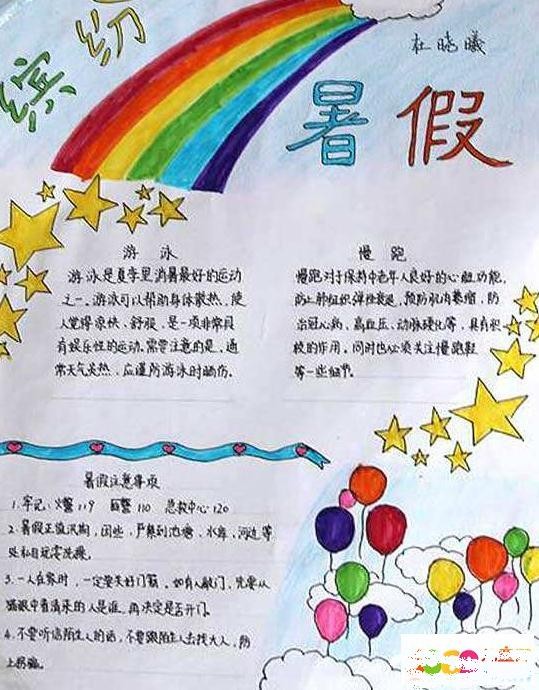 缤纷
杜晓曦
暑假
游泳
游泳是夏季里消暑最好的运动
之一。游泳可以帮助身体散热,使
人觉得凉快、舒服,是一项非常具
有娱乐性的运动。需要注意的是,通
常天气炎热,应谨防游泳时晒伤。
慢跑
慢跑对于保持中老年人良好的心脏功能,
防止肺组织弹性衰退,预防肌肉萎缩,防
治冠心病、高血压、动脉硬化等,具有积
极的作用。同时也必须关注慢跑鞋
等一些细节。
暑假注意事项
1.牢记:火警119 匪警110 急救中心120
2.暑假正值汛期,因些,严禁到池塘、水库、河边等
处私自玩零洗澡。
3.一人在家时,一定要关好门窗。如有人敲门,先要从
猫眼中看清来的人是谁,再决定是否开门。
4.不要听信陌生人的话,不要跟陌生人去找大人,防
上拐骗。